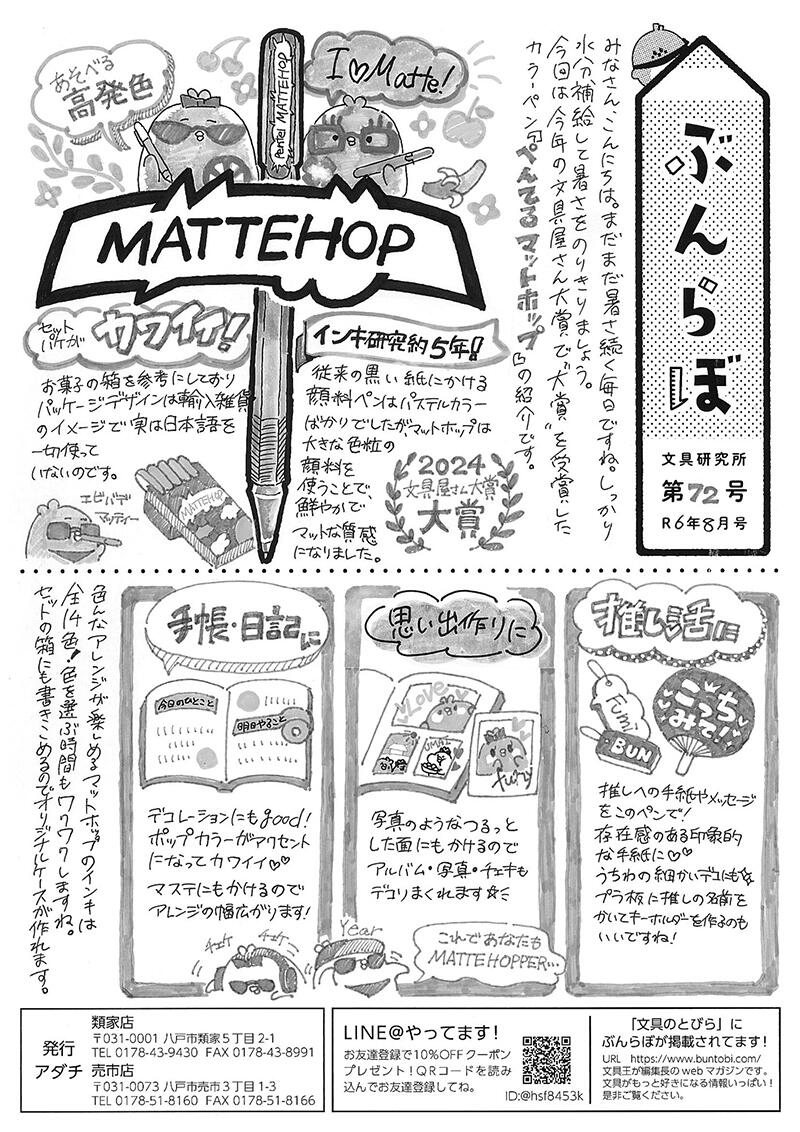 ぶんらぼ
文具研究所
第72号
R6年8月号
みなさん、こんにちは。まだまだ暑さ続く毎日ですね。しっかり
水分補給して暑さをのりきりましょう。
今回は今年の文具屋さん大賞で"大賞"を受賞した
カラーペン『ぺんてるマットホップ』の紹介です。
あそべる
高発色
I♡Matte!
Pentel MATTEHOP
MATTEHOP
セット
パケが
カワイイ!
お菓子の箱を参考にしており
パッケージデザインは輸入雑貨
のイメージで実は日本語を
一切使って
いけないのです。
エビバデ
マッティー
MATTEHOP
インキ研究約5年!!
従来の黒い紙にかける
顔料ペンはパステルカラー
ばかりでしたがマットホップは
大きな色粒の
顔料を
使うことで、
鮮やかで
マットな質感
になりました。
2024
文具屋さん大賞
大賞
色んなアレンジが楽しめるマットホップのインキは
全14色!色を選ぶ時間もワクワクしますね。
セットの箱にも書きこめるのでオリジナルケースが作れます。
手帳・日記に
今日のひとこと
明日やること
デコレーションにもgood!
ポップカラーがアクセント
になってカワイイ♡♡
マステにもかけるので
アレンジの幅広がります!
思い出作りに
Love
UMAI
写真のようなつるっと
した面にもかけるので
アルバム・写真・チェキも
デコりまくれます☆
推し活に
fumi
BUN
こっち
みて!
推しへの手紙やメッセージ
をこのペンで!
存在感のある印象的
な手紙に♡♡
うちわの細かいデコにも☆
プラ板に推しの名前を
かいてキーホルダーを作るのも
いいですね!
チェケ
チェケ
Year
これであなたも
MATTEHOPPER…
発行
アダチ
類家店
〒031-0001 八戸市類家5丁目2-1
TEL 0178-43-9430 FAX 0178-43-8991
売市店
〒031-0073 八戸市売市3丁目1-3
TEL 0178-51-8160 FAX 0178-51-8166
LINE@やってます!
お友達登録で10%OFFクーポン
プレゼント!QRコードを読み
込んでお友達登録してね。
ID:@hsf8453k
「文具のとびら」に
ぶんらぼが掲載されてます!
URL https://www.buntobi.com/
文具王が編集長のwebマガジンです。
文具がもっと好きになる情報いっぱい!
是非ご覧ください。